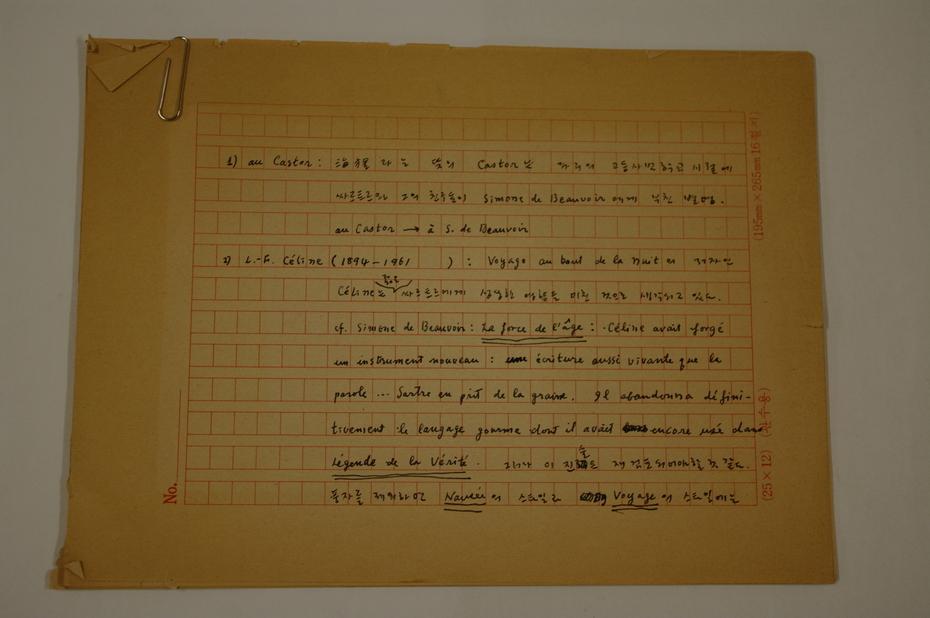 1) au Castor : 海狸 라는 뜻의 Castor는 고등사범학교 시절에
싸르트르와 그의 친구들이 Simone de Beauvoir 에게 붙인 별명.
au Castor → à S. de Beauvoir
2) L.-F. Céline (1894-1961 ) : Voyage au bout de la Nuit의 저자인
Céline는 젊은 싸르트르에게 상당한 영향을 미친 것으로 생각되고 있다.
cf. Simone de Beauvoir : La force de l'âge : Céline avait forgé
un instrument nouveau : une écriture aussi vivante que la
parole ... Sartre en prit de la graine. Il abandonna défini-
tivement le langage gourmé dont il avait encore usé dans
Légende de la Vérité. 그러나 이 진술도 재검토되어야 할 것 같다.
풍자를 제외하면 Nausée의 스타일로 Voyage의 스타일에는
No.
(25×12)
(195mm×265mm 16절지)